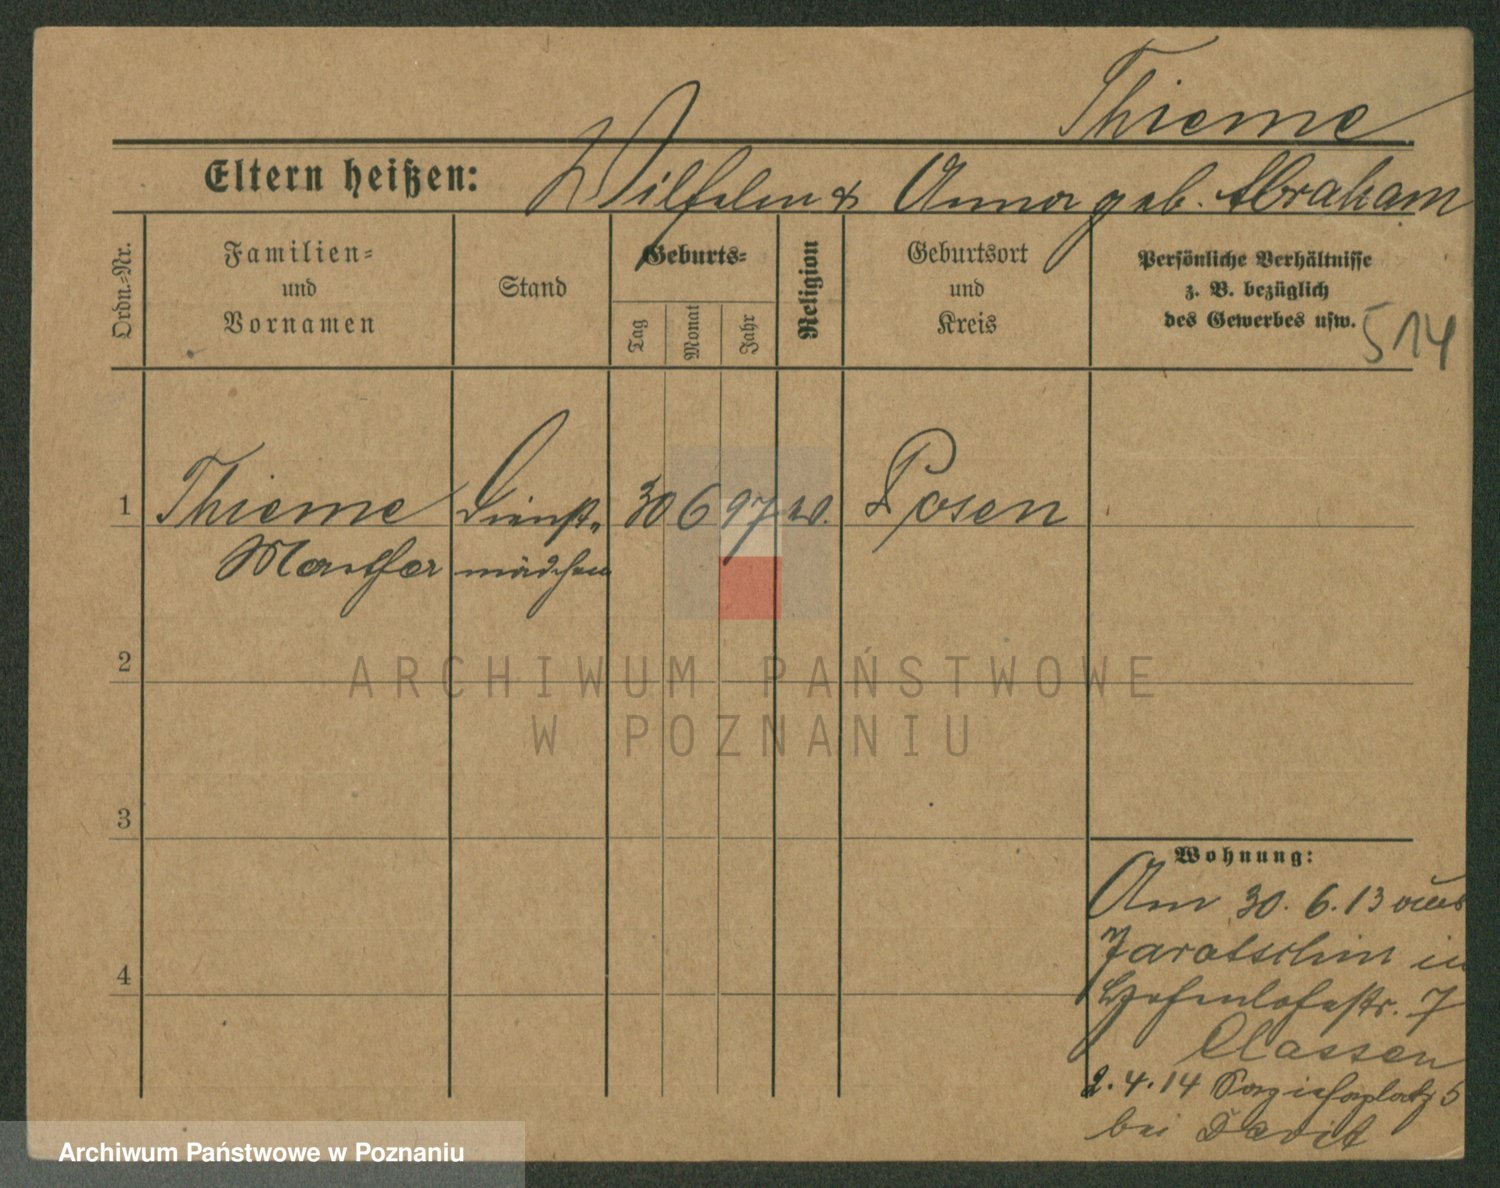 Thieme
Eltern heißen: Wilhelm & Anna geb. Abraham
Ordn.-Nr.
Familien-
und
Vornamen
Stand
Geburts-
Tag
Monat
Jahr
Religion
Geburtsort
und
Kreis
Persönliche Verhältnisse
z. B. bezüglich
des Gewerbes usw.
514
1 Thieme Dienst- 30 6 97 Posen
Martha mädchen
2
3
4
Wohnung:
Am 30. 6. 13 aus
Jarotschin in
Hohenlohestr. 7
Classen
2. 4. 14 5
bei David
ARCHIWUM PAŃSTWOWE
W POZNANIU
Archiwum Państwowe w Poznaniu